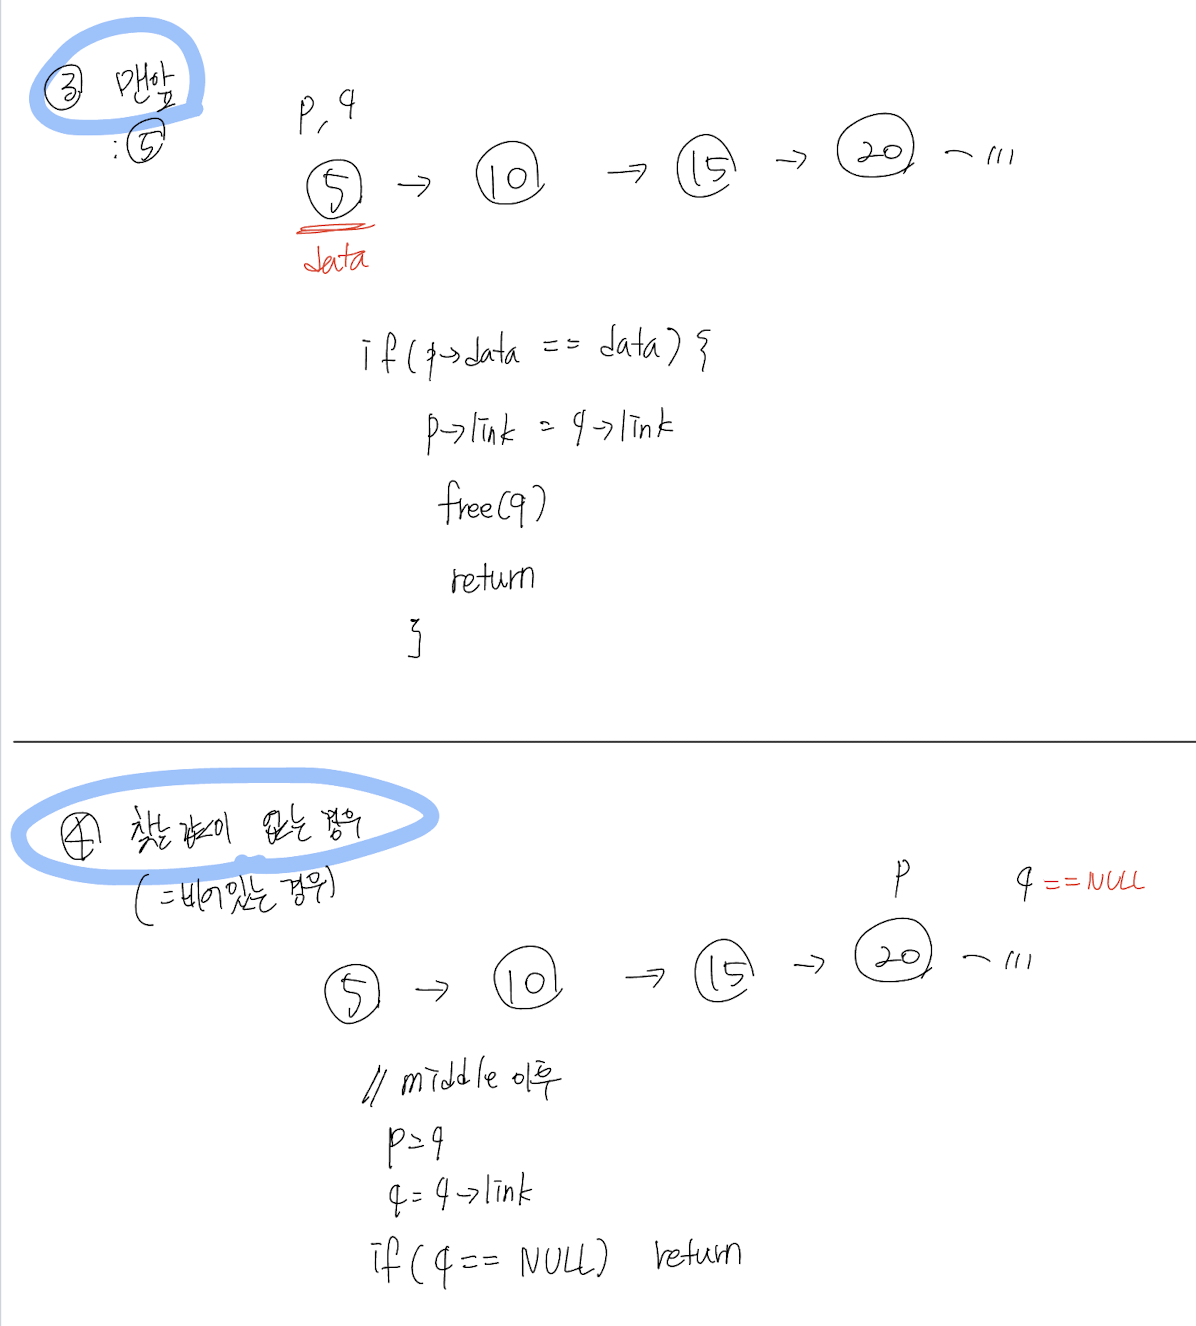 ③ 맨앞
: ⑤
p, q
5 → 10 → 15 → 20 - ...
data
if(p→data == data) {
p→link = q→link
free(q)
return
}
④ 찾는 값이 없는 경우
(=비어있는 경우)
p q == NULL
5 → 10 → 15 → 20 - ...
// middle 이후
p=q
q=q→link
if(q== NULL) return